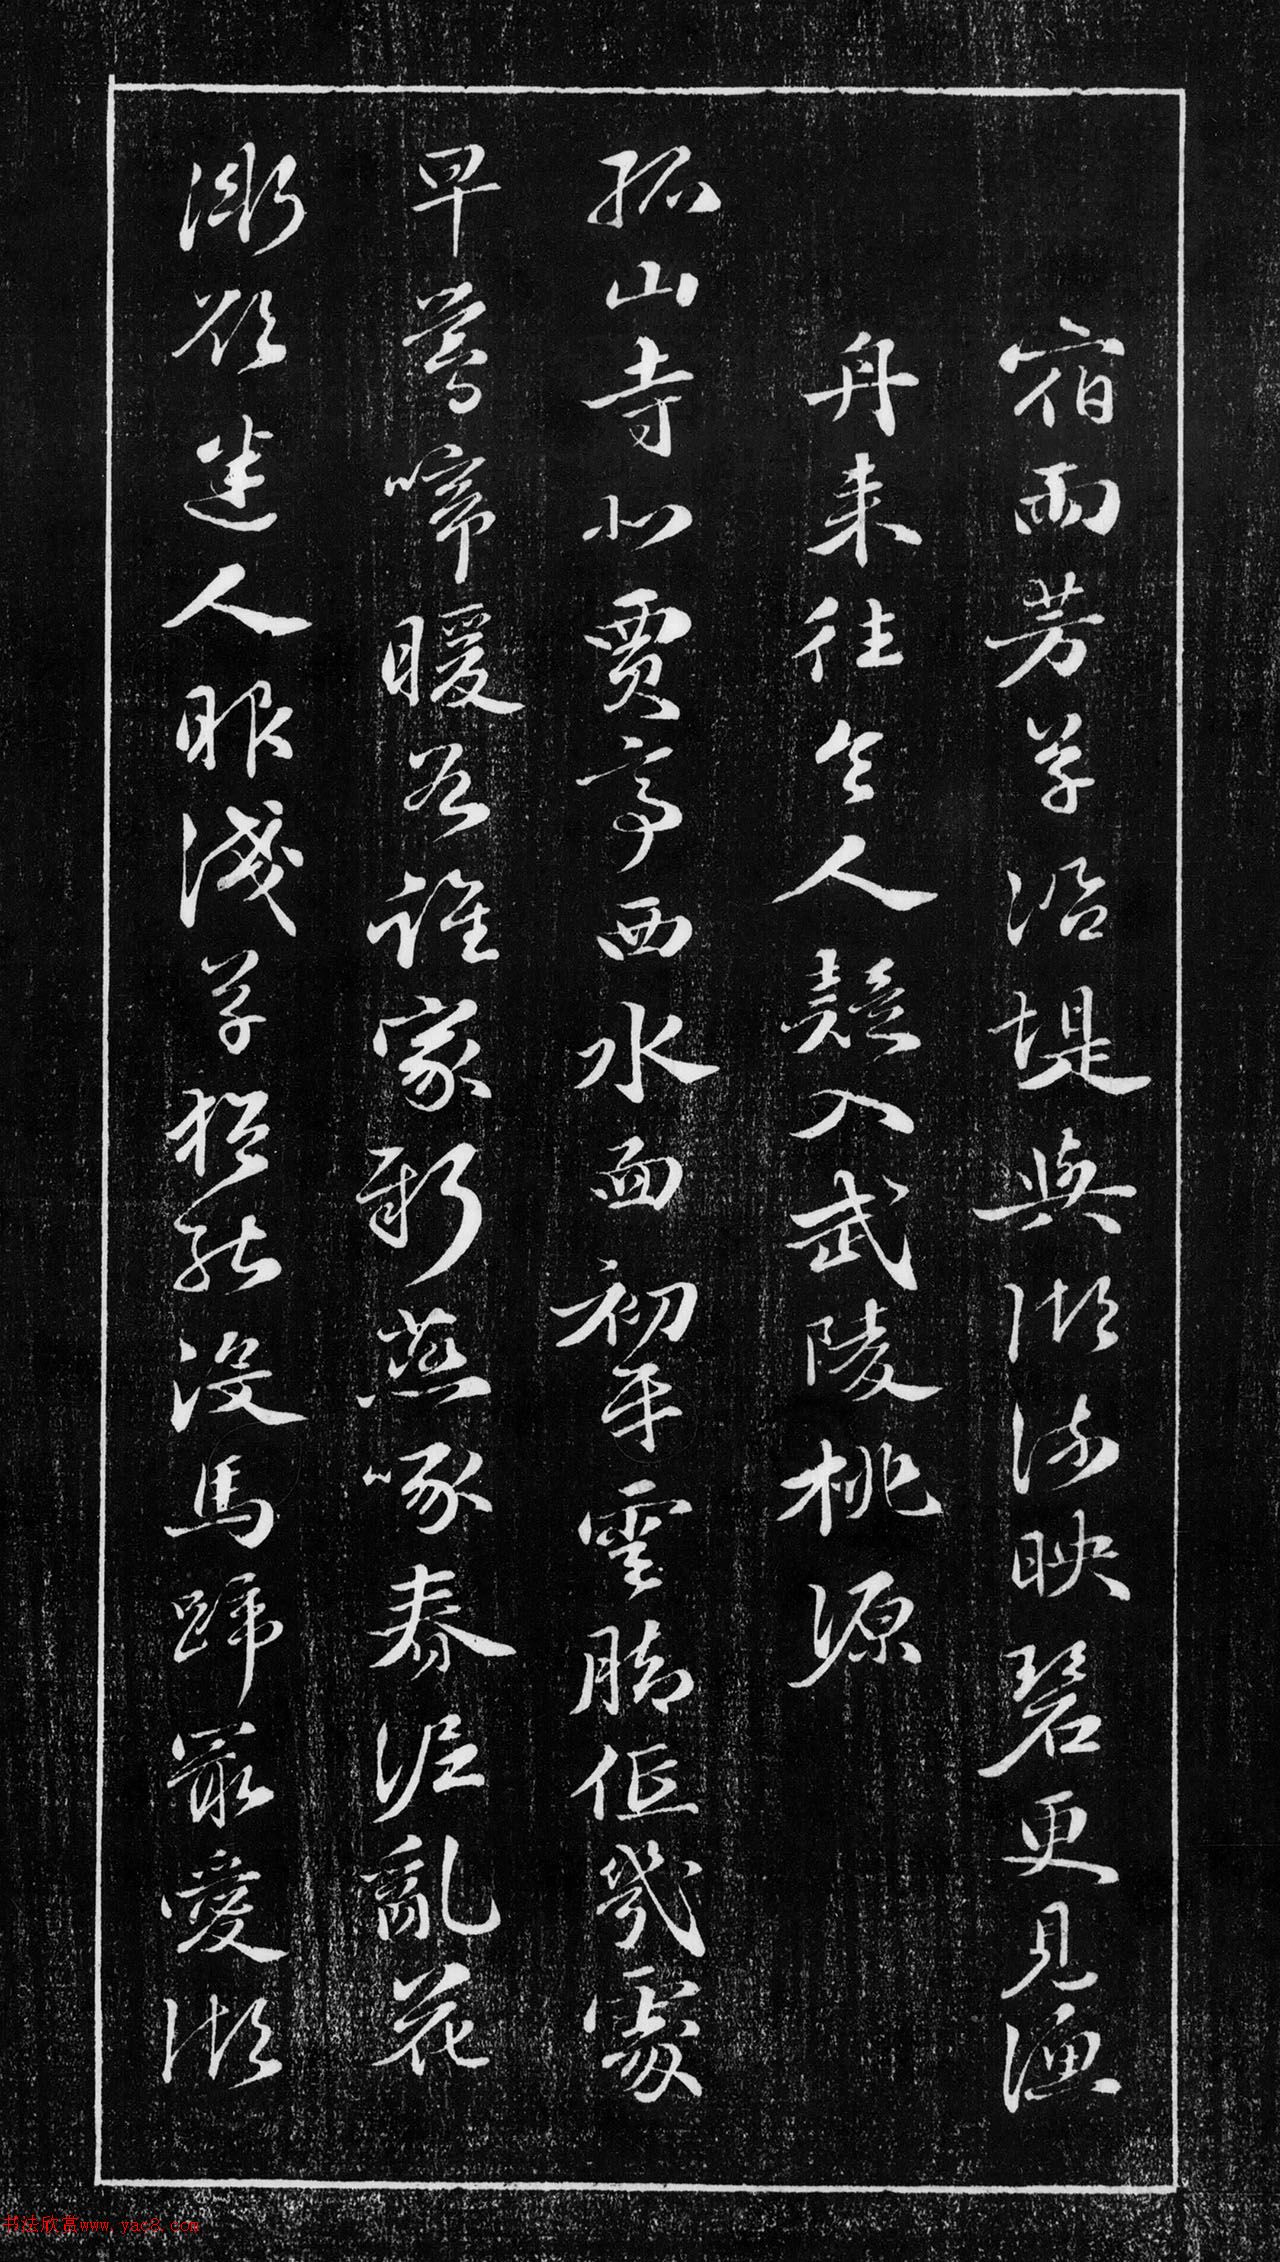 宿雨芳草沿堤與湖映碧更見漁
舟来往令人疑入武陵桃源
孤山寺北賈亭西水面初平雲脚低幾處
早鶯啼暖谷誰家新燕啄春泥亂花
漸欲迷人眼淺草猶能沒馬蹄最愛湖
书法欣赏www.yac8.com